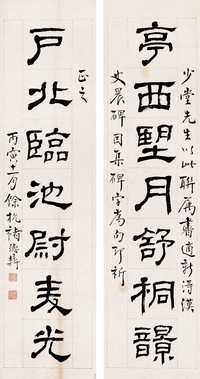 少堂先生以此聯属書適新得漢
亭西朢月舒桐韻
史晨碑因集碑字為句即祈
正之
戶北臨池尉麦光
丙寅十一月餘杭褚德彝